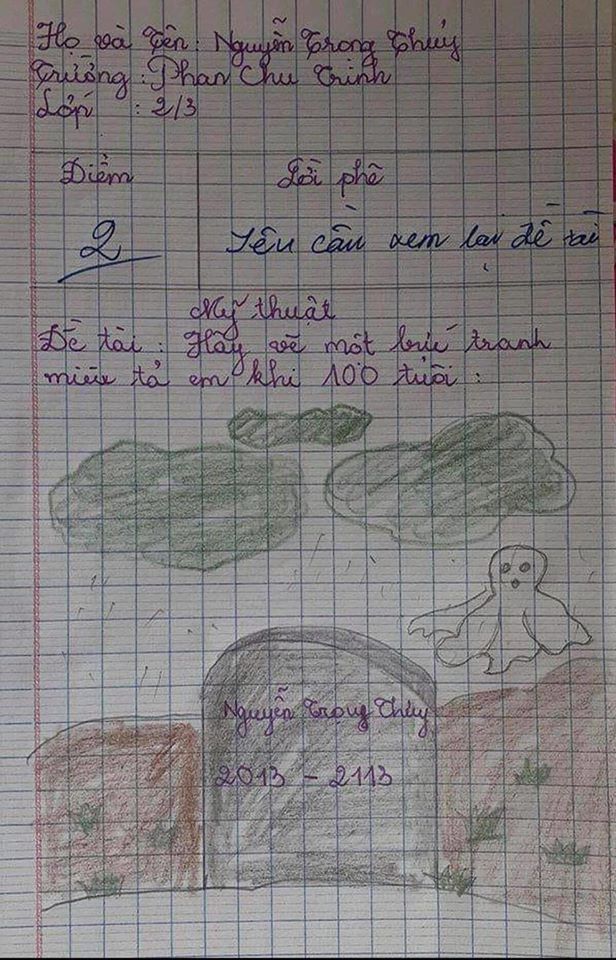 Họ và Tên: Nguyễn Trọng Thủy
Trường: Phan Chu Trinh
Lớp : 2/3
Điểm Lời phê
2 Yêu cầu xem lại đề tài
Mỹ thuật
Đề tài: Hãy vẽ một bức tranh
miêu tả em khi 100 tuổi:
Nguyễn Trọng Thủy
2013 - 2113